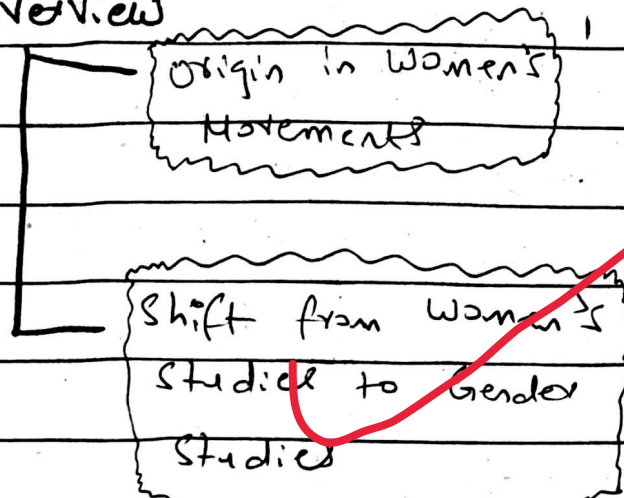 verview
origin in women's
Movements
shift from women's
studies to Gender
studies